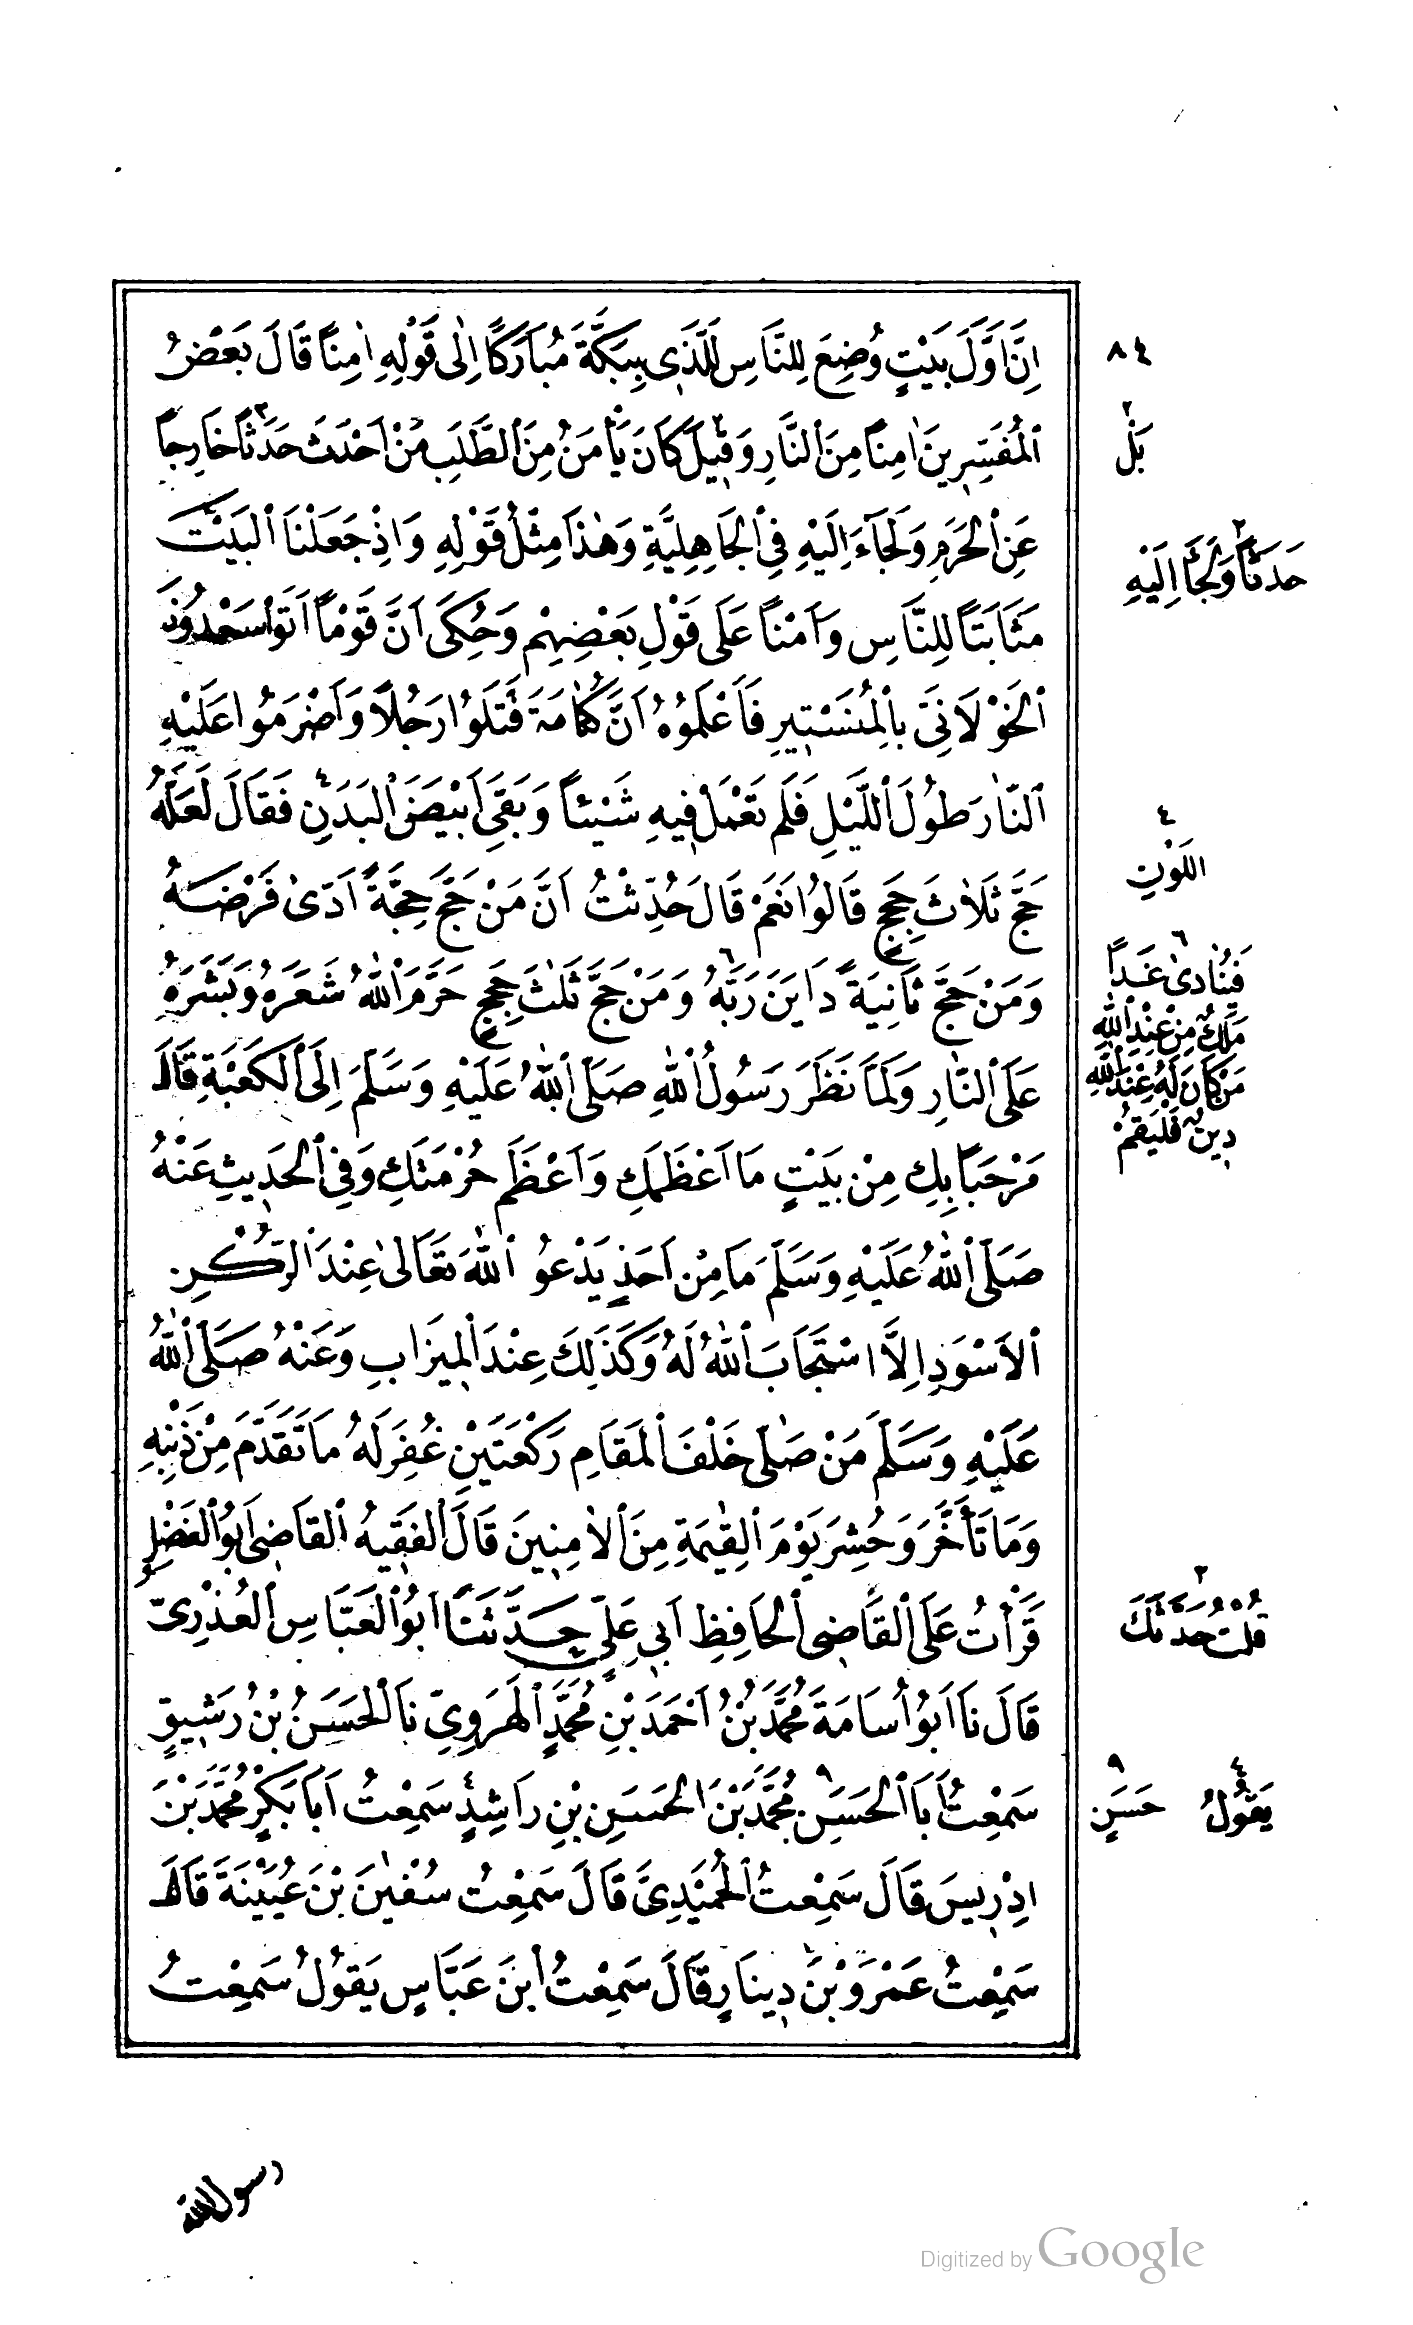 اِنَّ اَوَّلَ بَيْتٍ وُضِعَ لِلنَّاسِ لَلَّذٖى بِبَكَّةَ مُبَارَكًا اِلٰى قَوْلِهِ اٰمِنًا قَالَ بَعْضُ
ٱلْمُفَسِّرٖينَ اٰمِنًا مِنَ ٱلنَّارِ وَقٖيلَ كَانَ يَأْمَنُ مِنَ ٱلطَّلَبِ مَنْ اَحْدَثَ حَدَثًا خَارِجًا
عَنِ ٱلْحَرَمِ وَلَجَآءَ اِلَيْهِ فِى ٱلْجَاهِلِيَّةِ وَهٰذَا مِثْلُ قَوْلِهِ وَاِذْ جَعَلْنَا ٱلْبَيْتَ
مَثَابَتًا لِلنَّاسِ وَاَمْنًا عَلَى قَوْلِ بَعْضِهِمْ وَحُكِىَ اَنَّ قَوْمًا اَتَوْا سَعْدُونَ
ٱلْخَوْلَانِىَّ بِالْمُنَسْتٖيرِ فَاَعْلَمُوهُ اَنَّ كُتَامَةَ قَتَلُوا رَجُلًا وَاَضْرَمُوا عَلَيْهِ
ٱلنَّارَ طُولَ ٱللَّيْلِ فَلَمْ تَعْمَلْ فٖيهِ شَيْئًا وَبَقِىَ اَبْيَضَ ٱلْبَدَنِ فَقَالَ لَعَلَّهُ
حَجَّ ثَلَاثَ حِجَجٍ قَالُوا نَعَمْ قَالَ حُدِّثْتُ اَنَّ مَنْ حَجَّ حِجَّةً اَدّٰى فَرْضَهُ
وَمَنْ حَجَّ ثَانِيَةً دَايَنَ رَبَّهُ وَمَنْ حَجَّ ثَلٰثَ حِجَجٍ حَرَّمَ ٱللّٰهُ شَعَرَهُ وَبَشَرَهُ
عَلَى ٱلنَّارِ وَلَمَّا نَظَرَ رَسُولُ ٱللّٰهِ صَلَّى ٱللّٰهُ عَلَيْهِ وَسَلَّمَ اِلَى ٱلْكَعْبَةِ قَالَ
مَرْحَبًا بِكِ مِنْ بَيْتٍ مَا اَعْظَمَكِ وَاَعْظَمَ حُرْمَتَكِ وَفِى ٱلْحَدٖيثِ عَنْهُ
صَلَّى ٱللّٰهُ عَلَيْهِ وَسَلَّمَ مَا مِنْ اَحَدٍ يَدْعُو ٱللّٰهَ تَعَالٰى عِنْدَ ٱلرُّكْنِ
ٱلْاَسْوَدِ اِلَّا اسْتَجَابَ ٱللّٰهُ لَهُ وَكَذٰلِكَ عِنْدَ ٱلْمٖيزَابِ وَعَنْهُ صَلَّى ٱللّٰهُ
عَلَيْهِ وَسَلَّمَ مَنْ صَلّٰى خَلْفَ ٱلْمَقَامِ رَكْعَتَيْنِ غُفِرَ لَهُ مَا تَقَدَّمَ مِنْ ذَنْبِهِ
وَمَا تَأَخَّرَ وَحُشِرَ يَوْمَ ٱلْقِيٰمَةِ مِنَ ٱلْاٰمِنٖينَ قَالَ ٱلْفَقٖيهُ ٱلْقَاضٖى اَبُو ٱلْفَضْلِ
قَرَأْتُ عَلَى ٱلْقَاضِى ٱلْحَافِظِ اَبٖى عَلِىٍّ حَدَّثَنَا اَبُو ٱلْعَبَّاسِ ٱلْعُذْرِىّ
قَالَ نَا اَبُو اُسَامَةَ مُحَمَّدُ بْنُ اَحْمَدَ بْنِ مُحَمَّدٍ ٱلْهَرَوِىّ نَا ٱلْحَسَنُ بْنُ رَشٖيقٍ
سَمِعْتُ اَبَا ٱلْحَسَنِ مُحَمَّدَ بْنَ ٱلْحَسَنِ بْنِ رَاشِدٍ سَمِعْتُ اَبَا بَكْرٍ مُحَمَّدَ بْنَ
اِدْرٖيسَ قَالَ سَمِعْتُ ٱلْحُمَيْدِىَّ قَالَ سَمِعْتُ سُفْيٰنَ بْنَ عُيَيْنَةَ قَالَ
سَمِعْتُ عَمْرَو بْنَ دٖينَارٍ قَالَ سَمِعْتُ ابْنَ عَبَّاسٍ يَقُولُ سَمِعْتُ
٨٤
٢
بَلْ
٣
حَدَثًا وَلَجَأَ اِلَيْهِ
٤
اللَوْنِ
٦
فَيُنَادٖى غَدًا
مَلَكٌ مِنْ عِنْدِ ٱللّٰهِ
مَنْ كَانَ لَهُ عِنْدَ ٱللّٰهِ
دَيْنٌ فَلْيَقُمْ
٢
قُلْتُ حَدَّثَكَ
٩ ٤
يَقُولُ حَسَنٍ
رسول الله
Digitized by Google